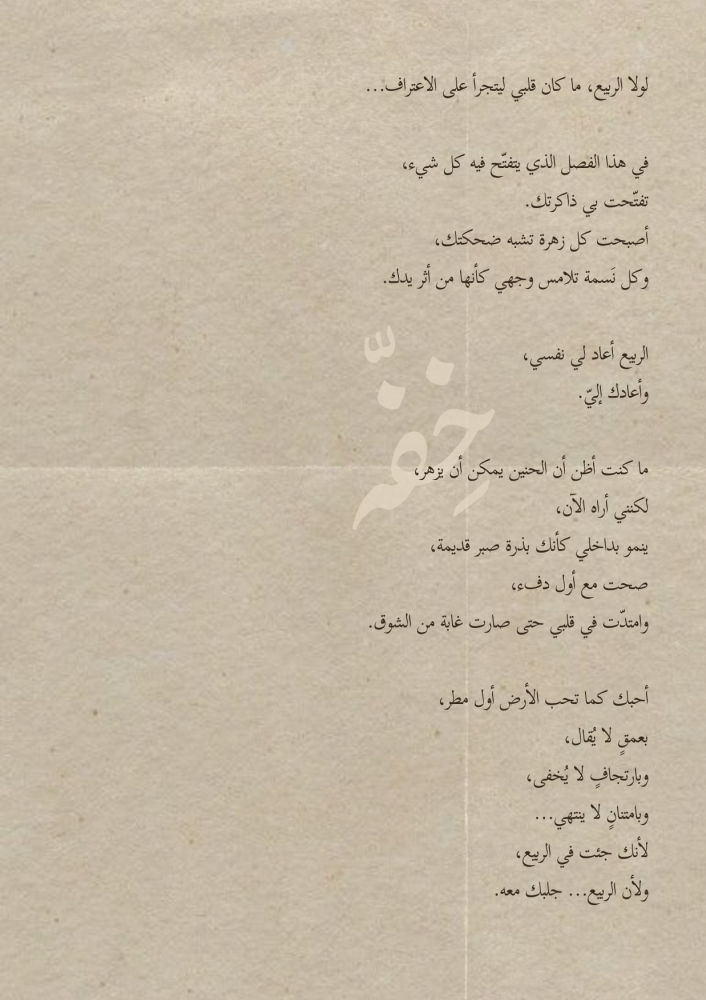 لولا الربيع، ما كان قلبي ليتجرأ على الاعتراف...
في هذا الفصل الذي يتفتّح فيه كل شيء،
تفتّحت بي ذاكرتك.
أصبحت كل زهرة تشبه ضحكتك،
وكل نَسمة تلامس وجهي كأنها من أثر يدك.
الربيع أعاد لي نفسي،
وأعادك إليّ.
خِفّه
ما كنت أظن أن الحنين يمكن أن يزهر،
لكنني أراه الآن،
ينمو بداخلي كأنك بذرة صبر قديمة،
صحت مع أول دفء،
وامتدّت في قلبي حتى صارت غابة من الشوق.
أحبك كما تحب الأرض أول مطر،
بعمقٍ لا يُقال،
وبارتجافٍ لا يُخفى،
وبامتنانٍ لا ينتهي...
لأنك جئت في الربيع،
ولأن الربيع... جلبك معه.